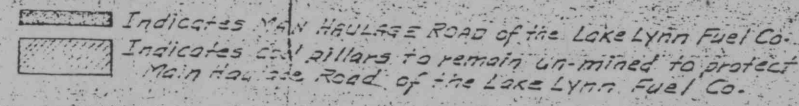 Indicates MAIN HAULAGE ROAD of the Lake Lynn Fuel Co.
Indicates coal pillars to remain un-mined to protect
Main Haulage Road of the Lake Lynn Fuel Co.